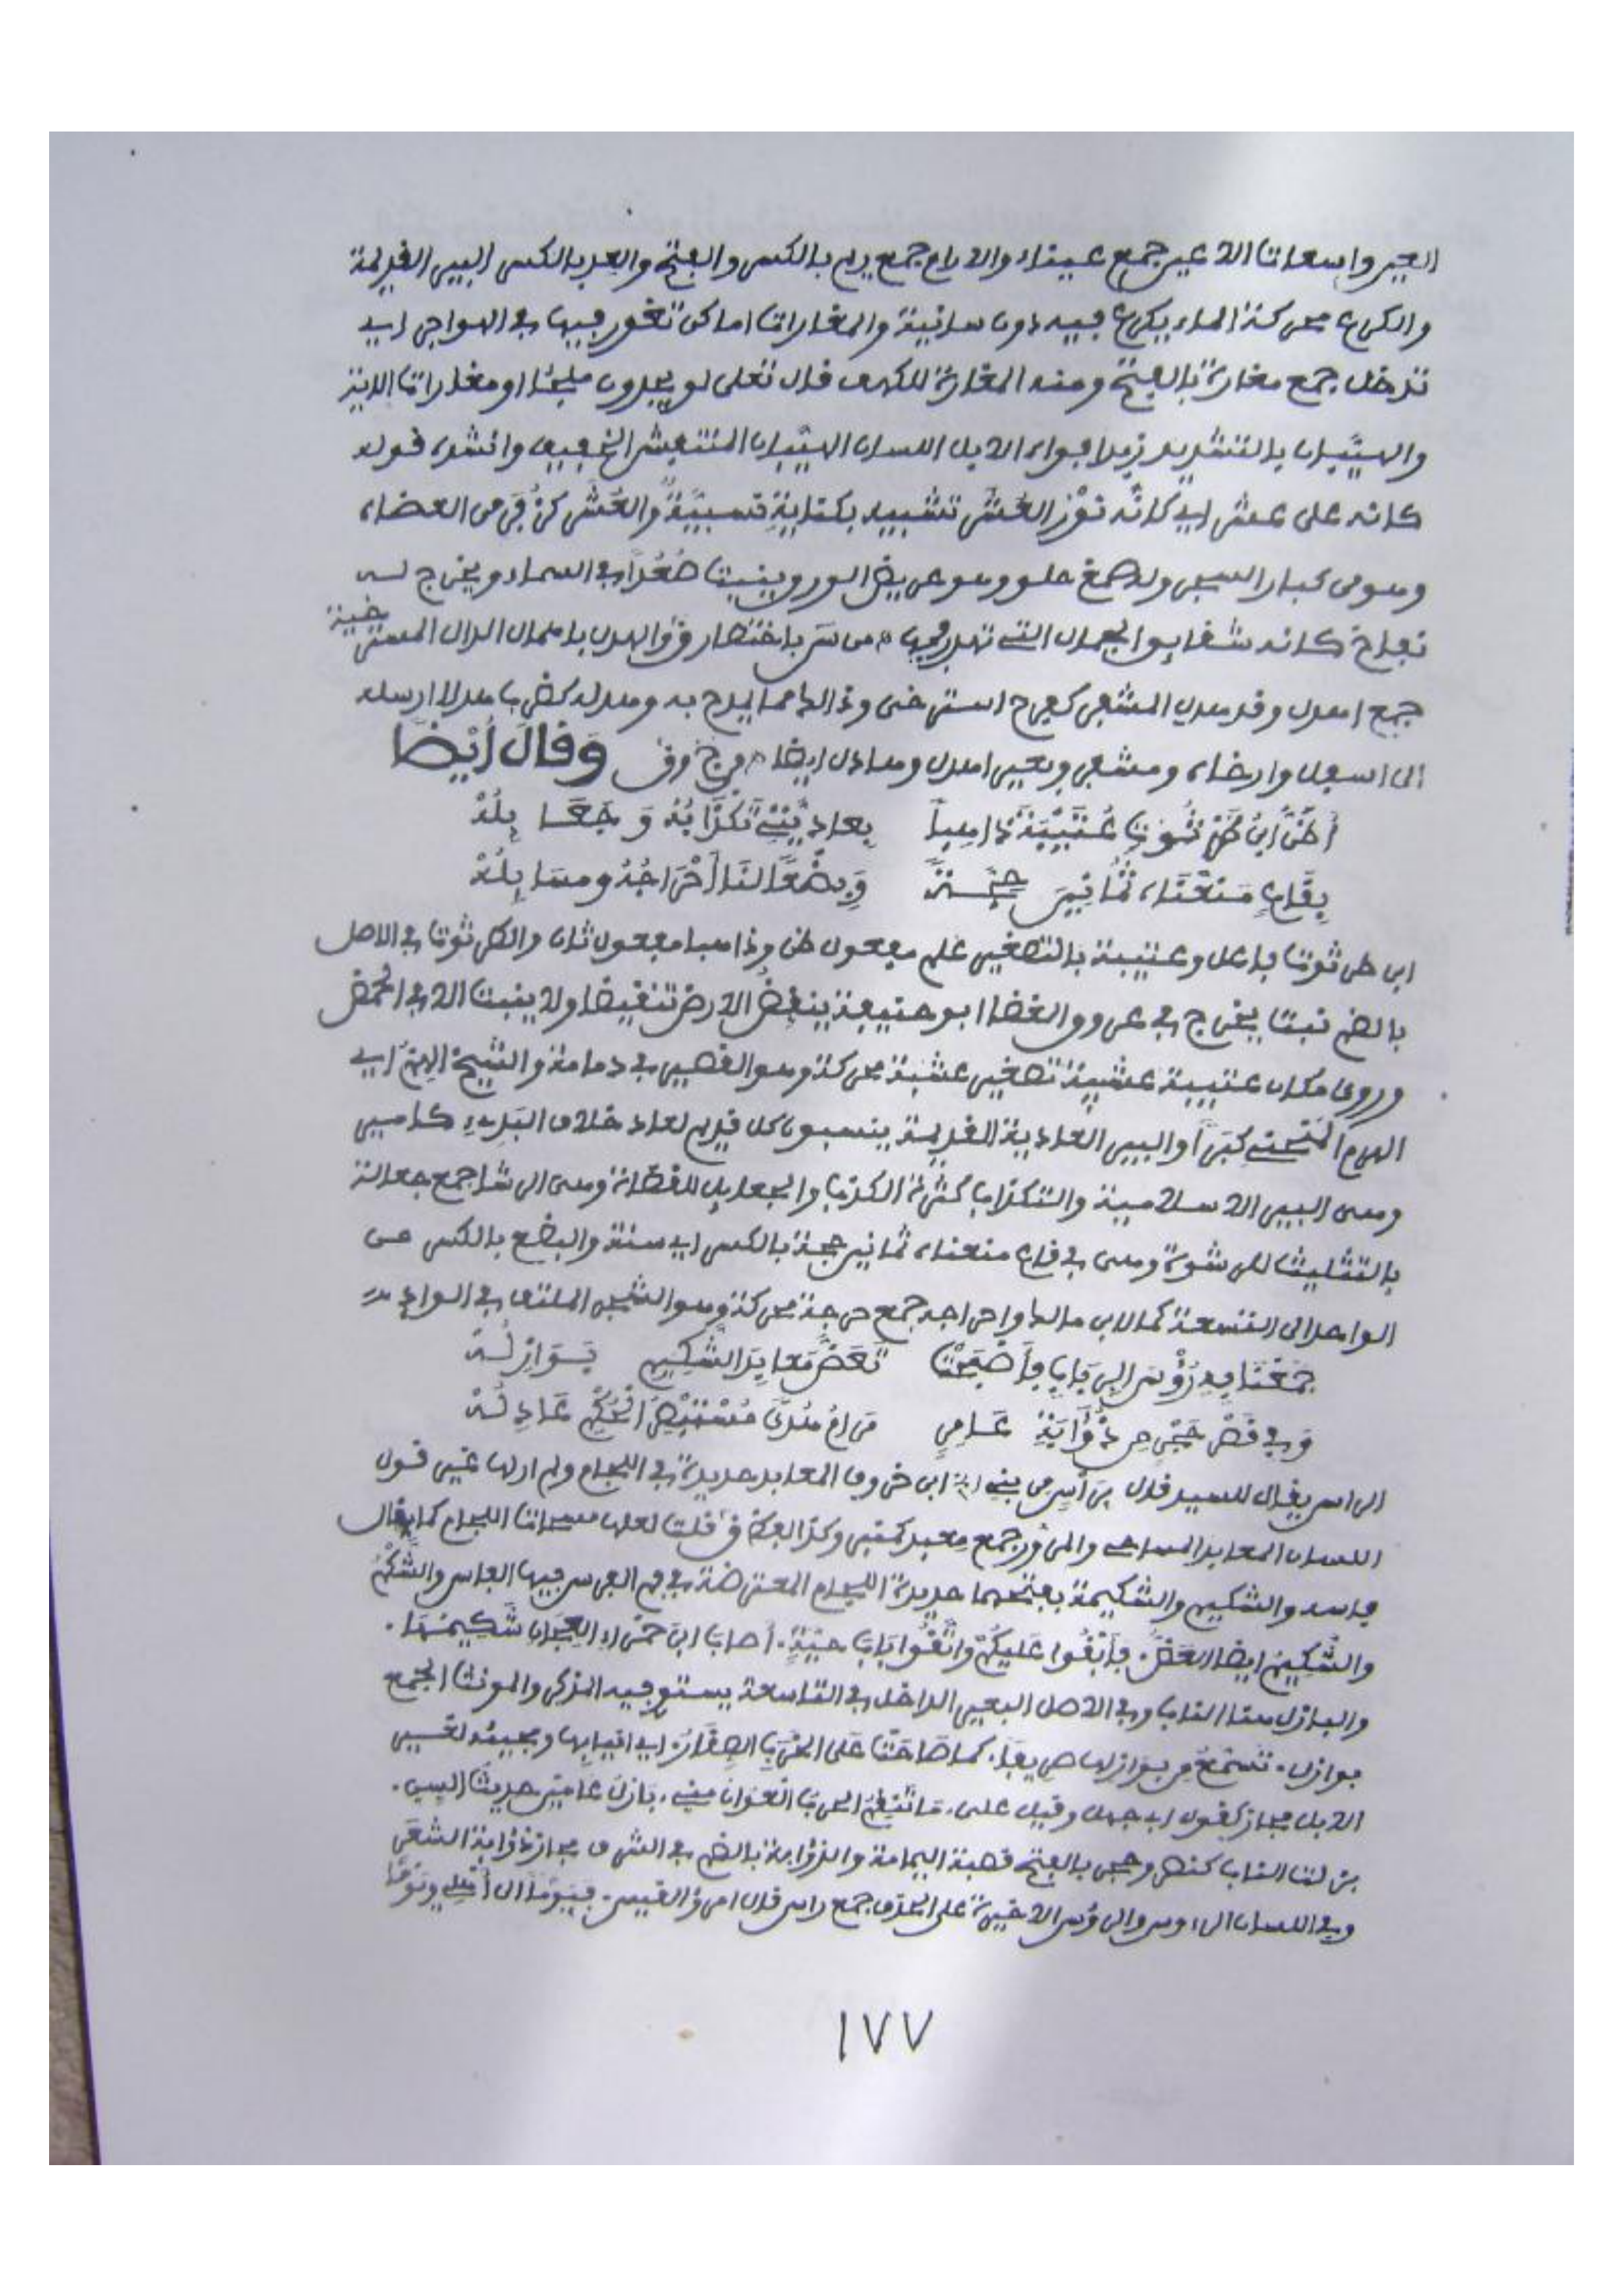 العين واسعات الاعين جمع عيناء والارام جمع ريم بالكسر والفتح والعد بالكسر البير القديمة
والكرع محركة الماء يكرع فيه دون سانية والمغارات اماكن تغور فيها في الهواجر اي
تدخل جمع مغارة بالفتح ومنه المغارة للكهف قال تعلى لو يجدون ملجئا او مغارات الاية
والهيّبان بالتشديد زبد افواه الابل اللسان الهيّبان المنتفش الخفيف وانشد قوله
كانه على عشر اي كانه نَوْر العُشَر تشبيه بكناية تسبيّة والعُشَر كزُفَر من العضاه
وهو من كبار الشجر وله صمغ حلو وهو عريض الورق ينبت صُعُدًا في السماء ويخرج له
نفاخ كانه شقايق الجمال التي تهدر فيها ه من س باختصار ق والهدل باهمال الدال المسترخية
جمع اهدل وقد هدل المشفر كفرح استرخى وذالك مما يمدح به وهدله كضرب هدلا ارسله
الى اسفل وارخاه ومشفر وبعير اهدل وهادل ايضا ه من ج وق وَقَالَ أَيْضًا
أَظُنُّ ابْنُ طُرْثُوثٍ عُتَيْبَةُ ذَاهِبًا بِعَادِيَّتِي تَكْذَابُهُ وَجَعَائِلُهْ
بِقَاعٍ مَنَعْنَاهُ ثَمَانِينَ حِجَّةً وَبِضْعًا لَنَا أَحْرَاجُهُ وَمَسَايِلُهْ
ابن طرثوث فاعل وعتيبة بالتصغير علم مفعول ظن وذاهبا مفعول ثان والطرثوث في الاصل
بالضم نبت يخرج في عروق الغضا ابو حنيفة ينقض الارض تنقيضا ولا ينبت الا في الحمض
وروي مكان عتيبة عشيبة تصغير عشبة محركة وهو القصير في دمامة والشيخ الهِمّ اي
الهرم المنحني كبَرًا والبير العادية القديمة ينسبون كل قديم لعاد خلاف البَدِيء كامير
وهي البير الاسلامية والتكذاب كثرة الكذب والجعايل للقضاة وهي الرشا جمع جعالة
بالتثليث للرشوة وهي في قاع منعناه ثمانين حجة بالكسر اي سنة والبضع بالكسر من
الواحد الى التسعة كما لابن مالك واحراجه جمع حرجة محركة وهو الشجر الملتف في الوادي
جَمَعْنَا بِهِ رُؤْسَ الرِّبَابِ فَأَصْبَحَتْ تَعَضُّ مَعَابِدَ الشَّكِيمِ بَوَازِلُهْ
وَفِي قَصْرِ حَجْرٍ مِنْ ذُؤَابَةِ عَامِرٍ إِمَامُ هُدًى مُسْتَبْصِرُ الْحُكْمِ عَادِلُهْ
الراس يقال للسيد قال بِرَأْسٍ من بني ابن خروف المعابد حديدة في اللجام ولم ارلها غير قول
اللسان المعابد المساحي والمرور جمع معبد كمنبر وكذا في ق قلت لعلها مسحات اللجام كما يقال
فاسه والشكيم والشكيمة بفتحهما حديدة اللجام المعترضة في فم الفرس فيها الفاس والشَّكْمُ
والشكيم ايضا العَضُّ فَأَبْقُوا عَلَيْكُمْ وَاتَّقُوا نَابَ حَيَّةٍ . أَصَابَ ابْنَ حَمْرَاءِ الْعِجَانِ شَكِيمُهَا .
والبازل هنا الناب وفي الاصل البعير الداخل في التاسعة يستوي فيه المذكر والمونث الجمع
بوازل . تَسْمَعُ مِنْ بَوَازِلِهَا صَرِيفًا . كما صَاحَتْ عَلَى الْخَرِبِ الصِّقَارُ . اي انيابها ومجيئه لغير
الابل مجاز كقول ابي جهل وقيل علي . مَا تَنْقِمُ الحرب العَوَانُ مِنِّي . بَازِلُ عَامَيْنِ حديثُ السن .
بزلت الناب كنصر وحجر بالفتح قصبة اليمامة والذؤابة بالضم في الشرف مجاز ذؤابة الشعَر
وفي اللسان الرءوس والرؤس الاخيرة على الحذف جمع راس قال امرؤ القيس . فَيَوْمًا الى أهلي ويَوْمًا
١٧٧